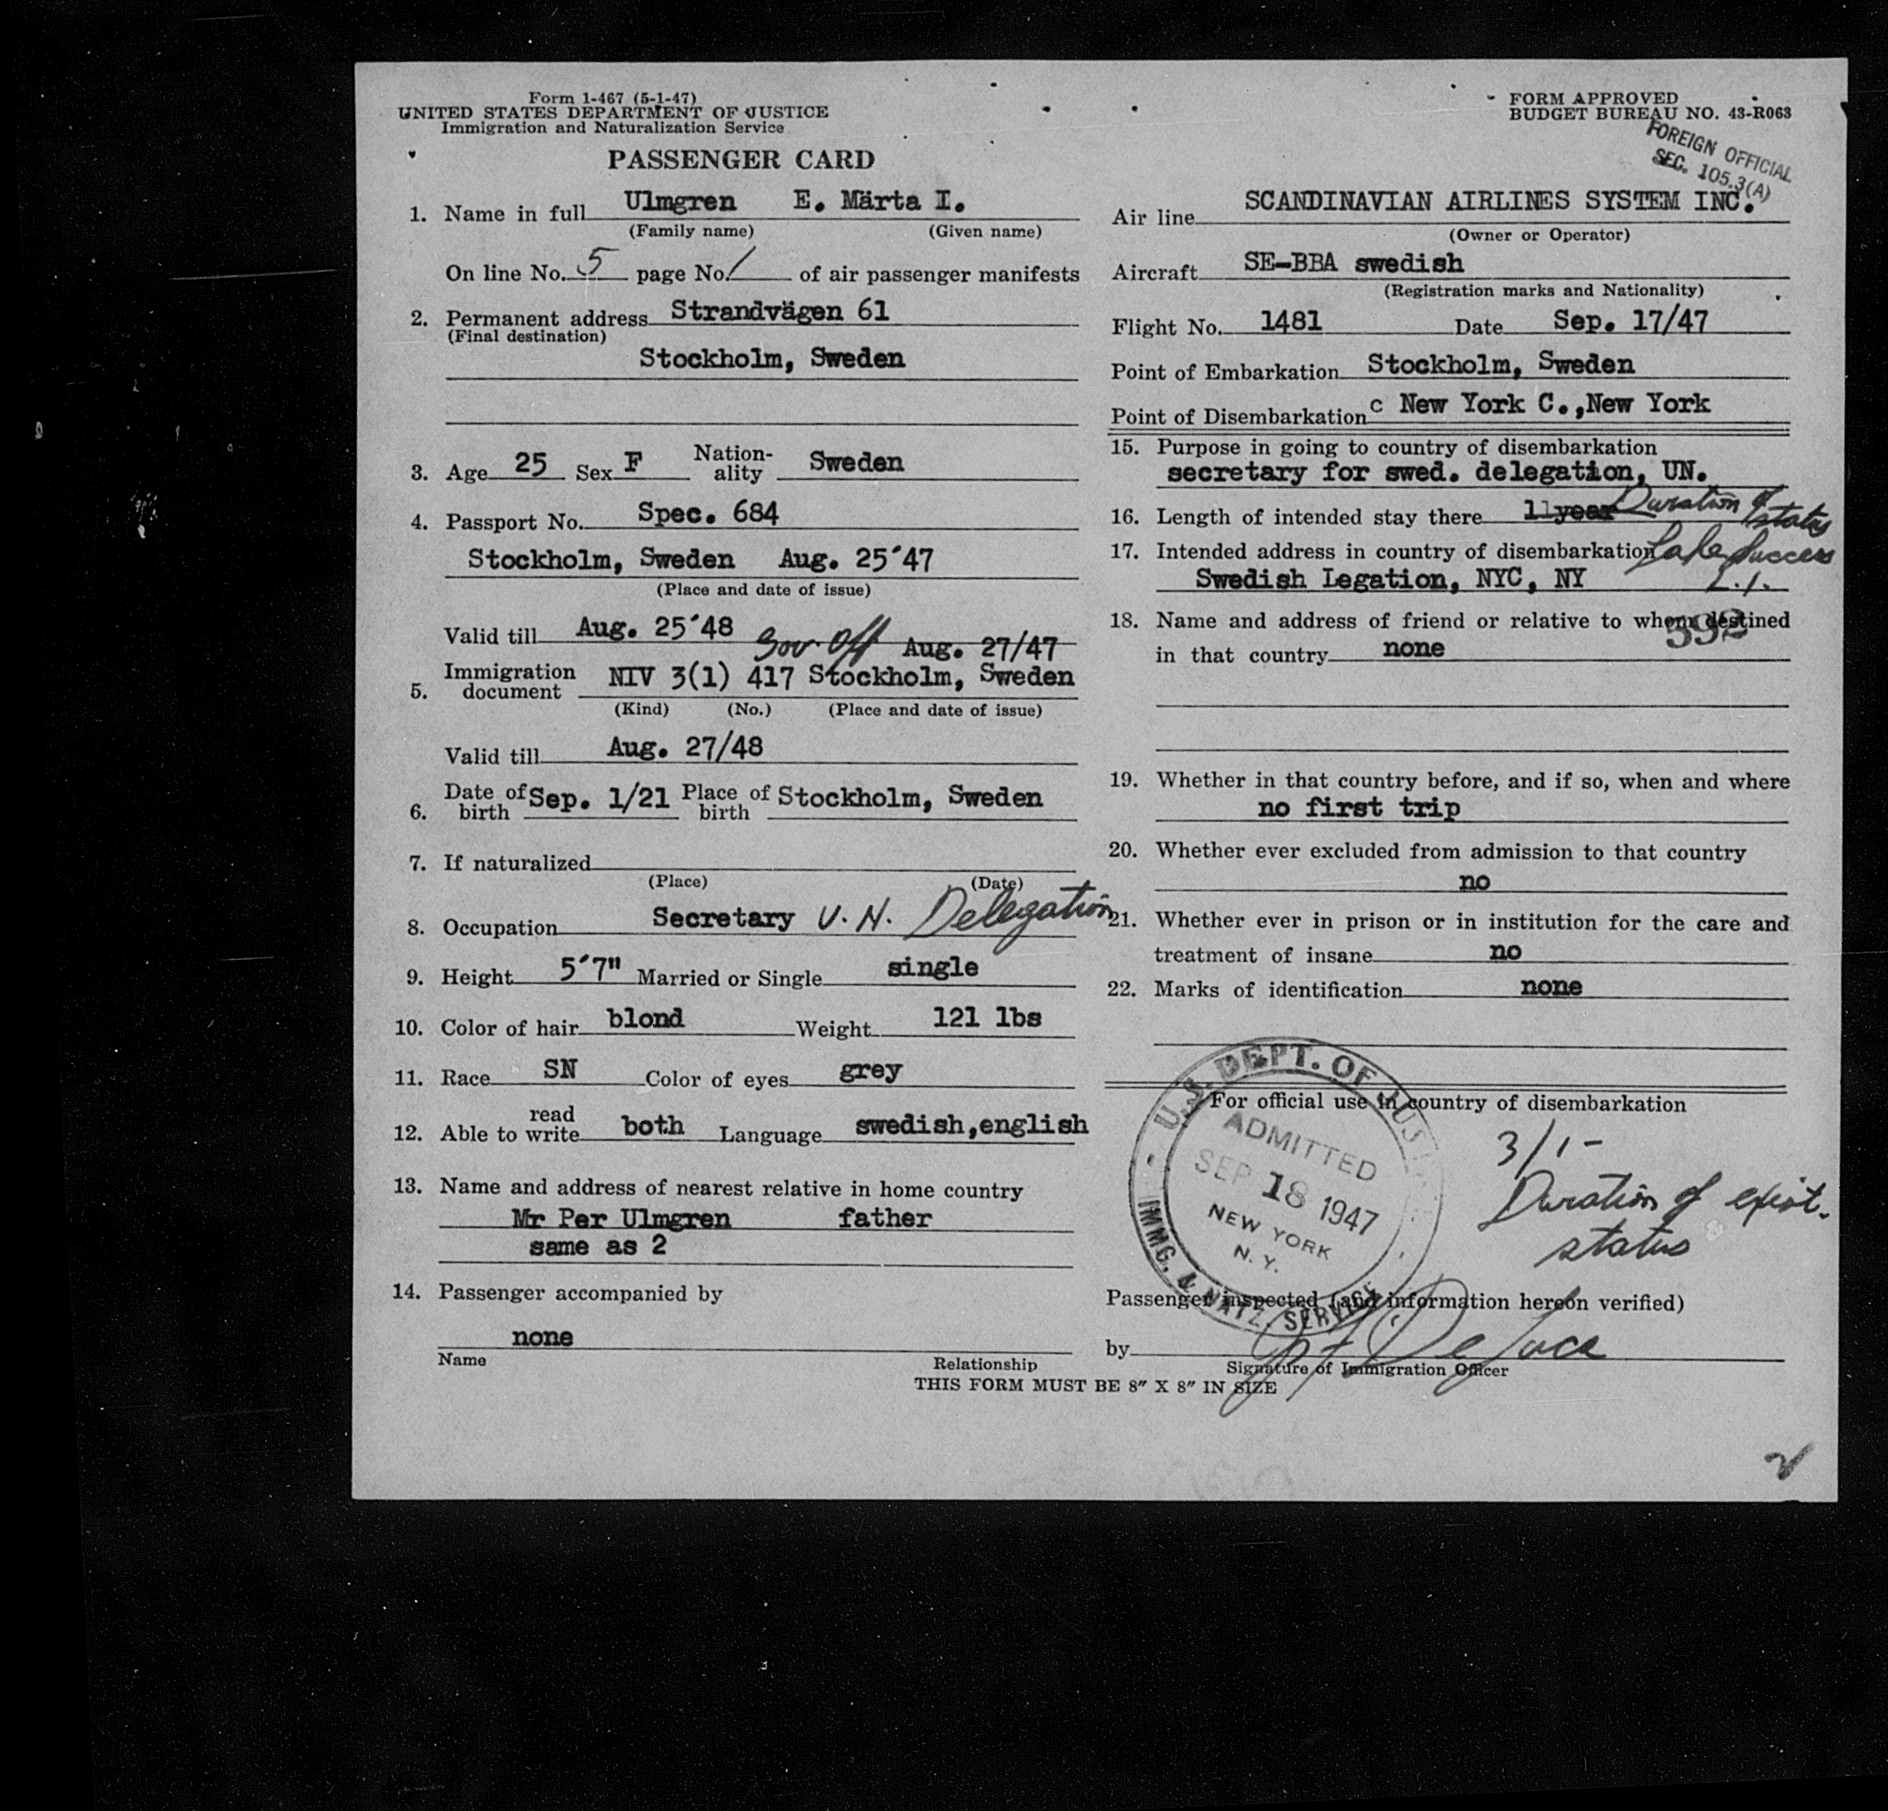 Form 1-467 (5-1-47)
UNITED STATES DEPARTMENT OF JUSTICE
Immigration and Naturalization Service
PASSENGER CARD
1. Name in full Ulmgren E. Märta I.
(Family name) (Given name)
On line No. 5 page No. 1 of air passenger manifests
2. Permanent address Strandvägen 61
(Final destination)
Stockholm, Sweden
3. Age 25 Sex F Nation-ality Sweden
4. Passport No. Spec. 684
Stockholm, Sweden Aug. 25'47
(Place and date of issue)
Valid till Aug. 25'48 Gov. Off Aug. 27/47
5. Immigration document NIV 3(1) 417 Stockholm, Sweden
(Kind) (No.) (Place and date of issue)
Valid till Aug. 27/48
6. Date of birth Sep. 1/21 Place of birth Stockholm, Sweden
7. If naturalized
(Place) (Date)
8. Occupation Secretary U.N. Delegation
9. Height 5'7" Married or Single single
10. Color of hair blond Weight 121 lbs
11. Race SN Color of eyes grey
12. Able to read write both Language swedish,english
13. Name and address of nearest relative in home country
Mr Per Ulmgren father
same as 2
14. Passenger accompanied by
none
Name Relationship
FORM APPROVED
BUDGET BUREAU NO. 43-R063
FOREIGN OFFICIAL
SEC. 105.3(A)
Air line SCANDINAVIAN AIRLINES SYSTEM INC.
(Owner or Operator)
Aircraft SE-BBA swedish
(Registration marks and Nationality)
Flight No. 1481 Date Sep. 17/47
Point of Embarkation Stockholm, Sweden
Point of Disembarkation c New York C.,New York
15. Purpose in going to country of disembarkation
secretary for swed. delegation, UN.
16. Length of intended stay there 1 year Duration of status
17. Intended address in country of disembarkation Lake Success
Swedish Legation, NYC, NY L.I.
18. Name and address of friend or relative to whom destined
592
in that country none
19. Whether in that country before, and if so, when and where
no first trip
20. Whether ever excluded from admission to that country
no
21. Whether ever in prison or in institution for the care and
treatment of insane no
22. Marks of identification none
For official use in country of disembarkation
U.S. DEPT. OF JUSTICE
IMMG. & NATZ. SERVICE
ADMITTED
SEP 18 1947
NEW YORK
N. Y.
3/1-
Duration of
status
Passenger inspected (and information hereon verified)
by De Luca
Signature of Immigration Officer
THIS FORM MUST BE 8" X 8" IN SIZE